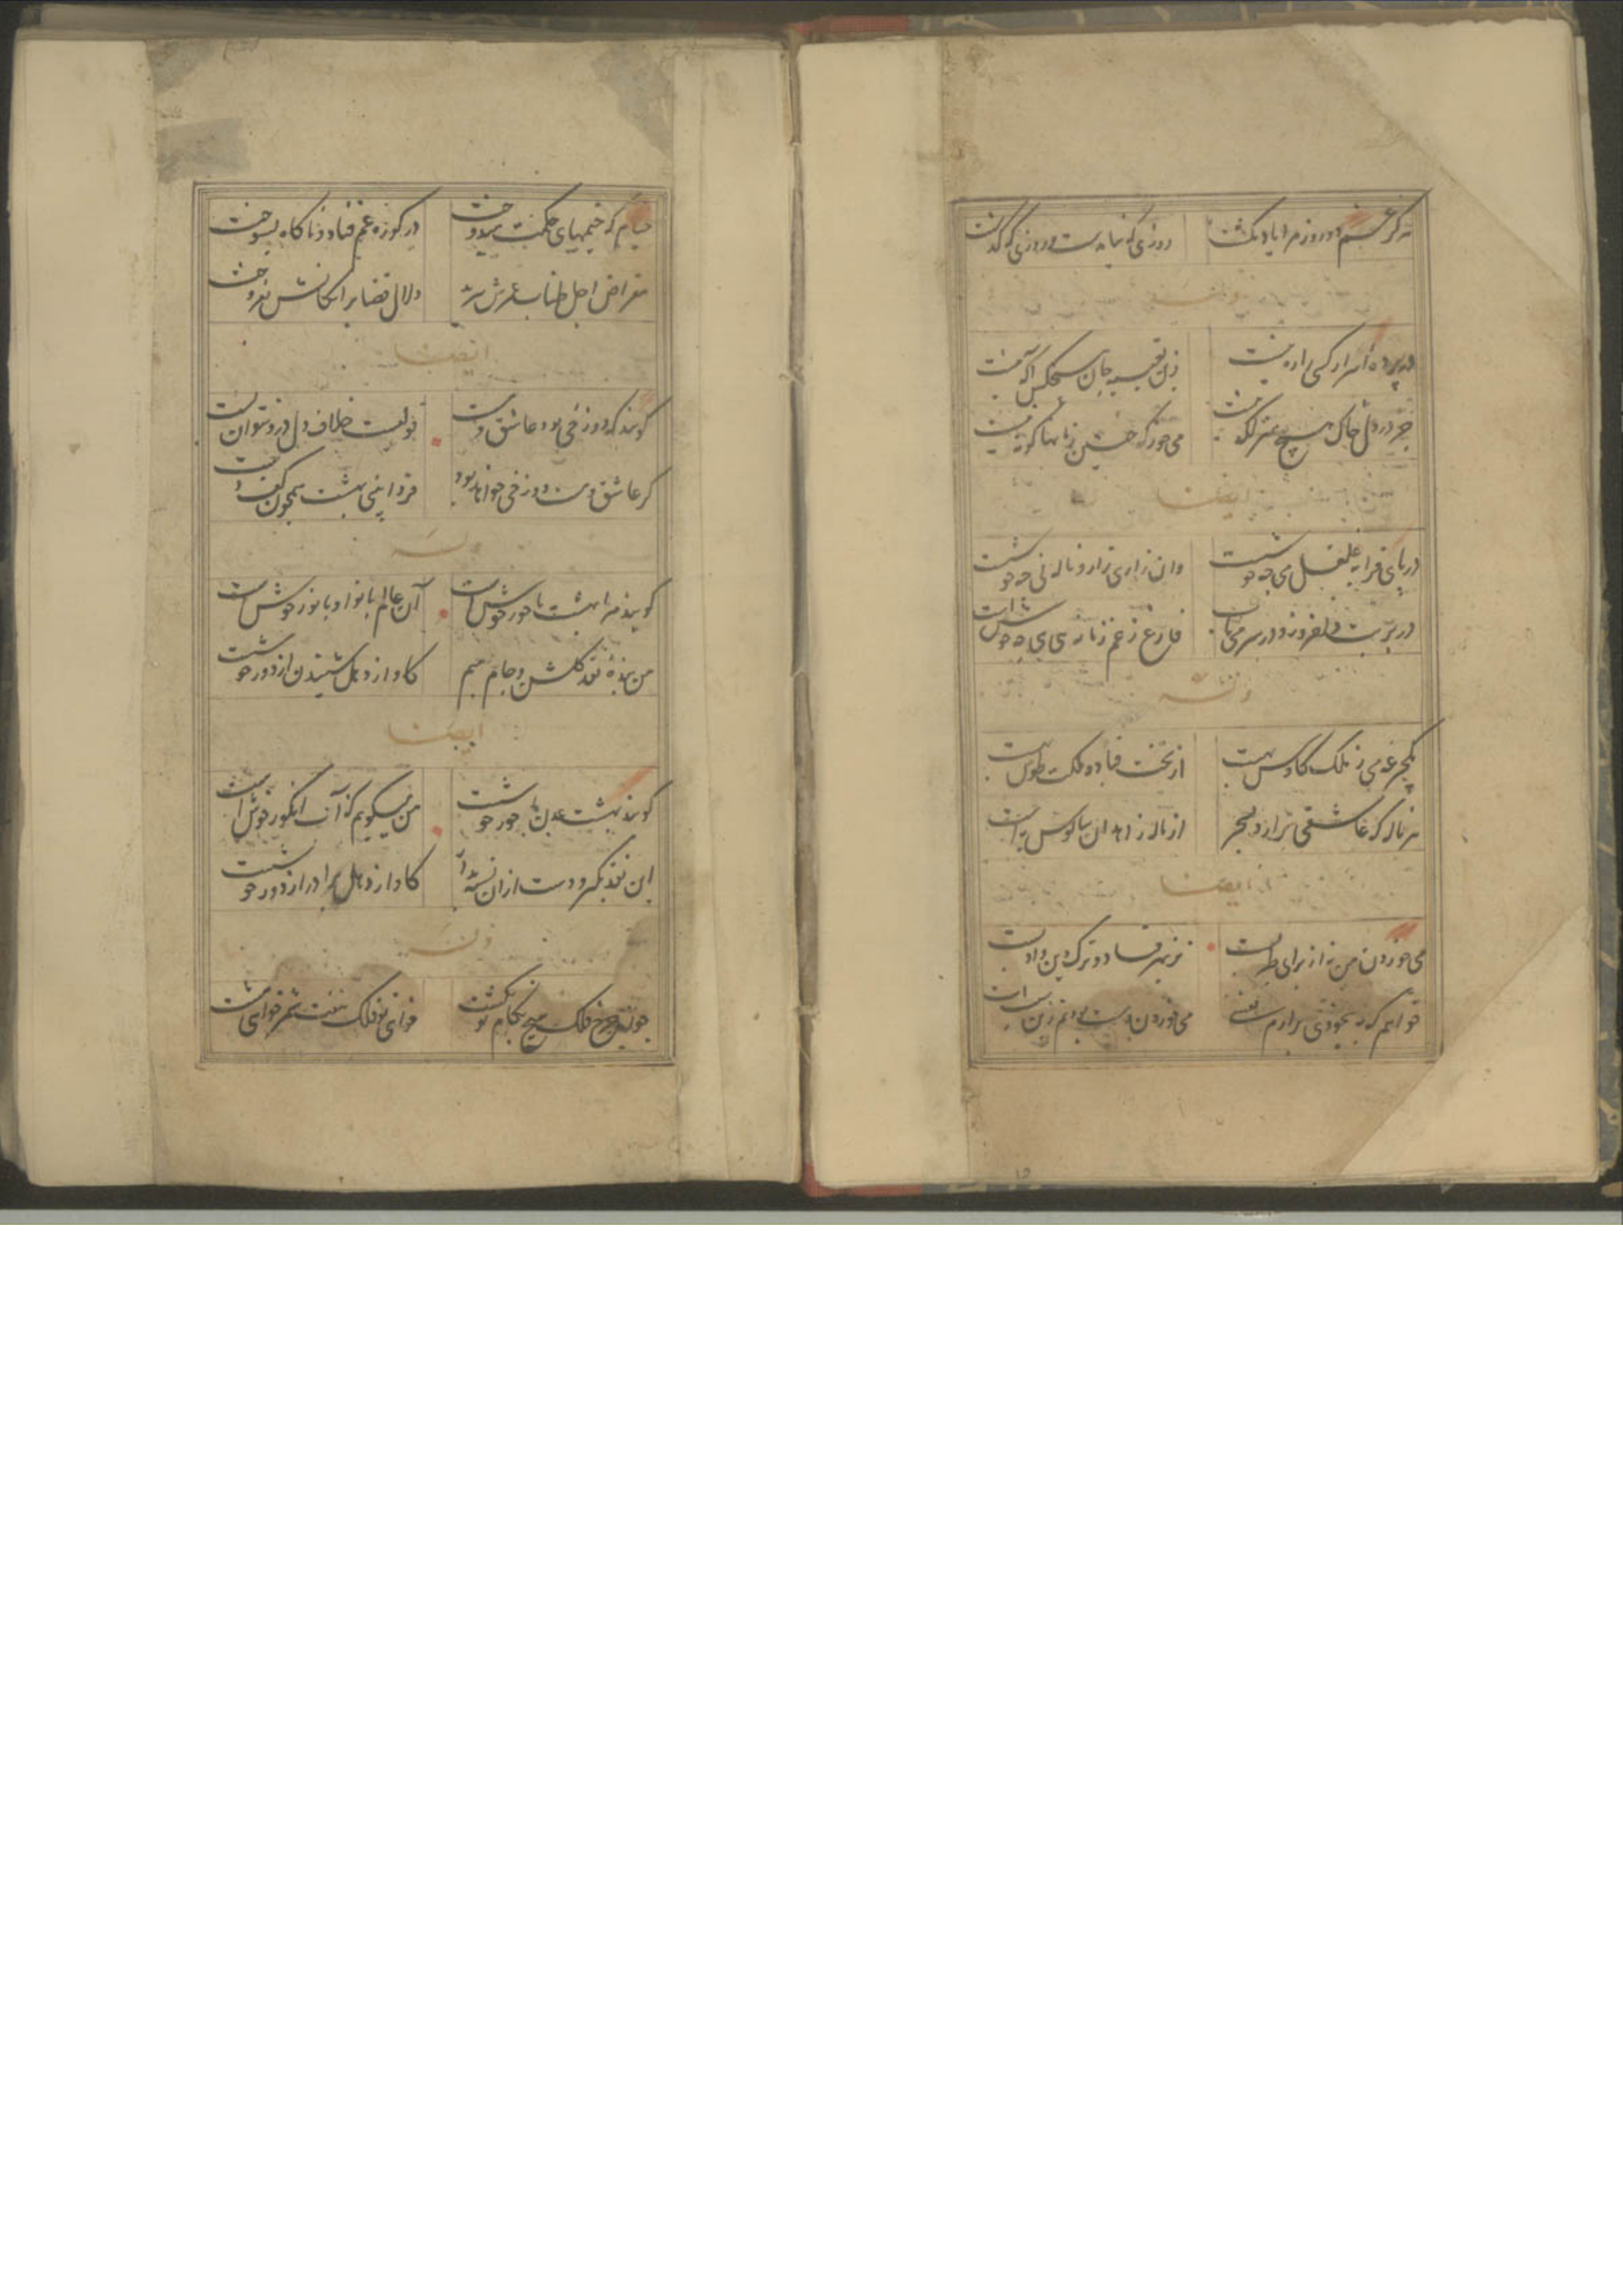 هرگز غم دو روز مرا یاد نگشت روزی که نیامدست و روزی که گذشت
وله
در پرده اسرار کسی را ره نیست زین تعبیه جان هیچکس آگه نیست
جز در دل خاک هیچ منزلگه نیست می خور که چنین فسانها کوته نیست
ایضا
در پای قرابه غلغل می چه خوشست وان زاری زار و ناله نی چه خوشست
در بر بت دلفروز و در سر می ناب فارغ ز غم زمانه هی هی چه خوش است
وله
یکجرعه می ز ملک کاوس بهست از تخت قباد و ملکت طوس بهست
هر ناله که عاشقی برارد بسحر از ناله زاهدان سالوس به است
ایضا
می خوردن من نه از برای طربست نز بهر فساد و ترک دین و ادبست
خواهم که به بیخودی برارم نفسی می خوردن و مست بودنم زین سبب است
خیام که خیمهای حکمت میدوخت در کوزه غم فتاد و ناگاه بسوخت
مقراض اجل طناب عمرش ببرید دلال قضا برایگانش بفروخت
ایضا
گویند که دوزخی بود عاشق و مست قولیست خلاف دل درو نتوان بست
گر عاشق و مست دوزخی خواهد بود فردا بینی بهشت همچون کف دست
وله
گویند مرا بهشت با حور خوش است آن عالم با نوا و با نور خوش است
من بنده نقد گلشن و جام میم کاواز دهل شنیدن از دور خوشست
ایضا
گویند بهشت عدن با حور خوشست من میگویم که آب انگور خوش است
این نقد بگیر و دست از آن نسیه بدار کاواز دهل برادر از دور خوشست
وله
چون نیست چرخ فلک هیچ بکام تو نگشت خواهی تو فلک هفت شمر خواهی هشت